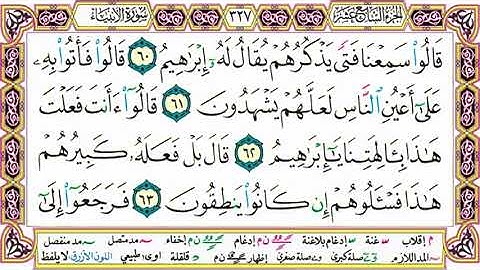 الجزء السابع عشر ٣٢٧ سورة الأنبياء
قَالُوا۟ سَمِعْنَا فَتًى يَذْكُرُهُمْ يُقَالُ لَهُۥٓ إِبْرَٰهِيمُ ٦٠ قَالُوا۟ فَأْتُوا۟ بِهِۦ
عَلَىٰٓ أَعْيُنِ ٱلنَّاسِ لَعَلَّهُمْ يَشْهَدُونَ ٦١ قَالُوٓا۟ ءَأَنتَ فَعَلْتَ
هَٰذَا بِـَٔالِهَتِنَا يَٰٓإِبْرَٰهِيمُ ٦٢ قَالَ بَلْ فَعَلَهُۥ كَبِيرُهُمْ
هَٰذَا فَسْـَٔلُوهُمْ إِن كَانُوا۟ يَنطِقُونَ ٦٣ فَرَجَعُوٓا۟ إِلَىٰٓ
م إقلاب س غنة س إدغام بلاغنة ن م إدغام ن م إخفاء مد متصل مد منفصل
المد اللازم صلة كبرى وصلة صغرى إظهار ن م قلقلة اوى طبيعي اللون الأزرق لا يلفظ